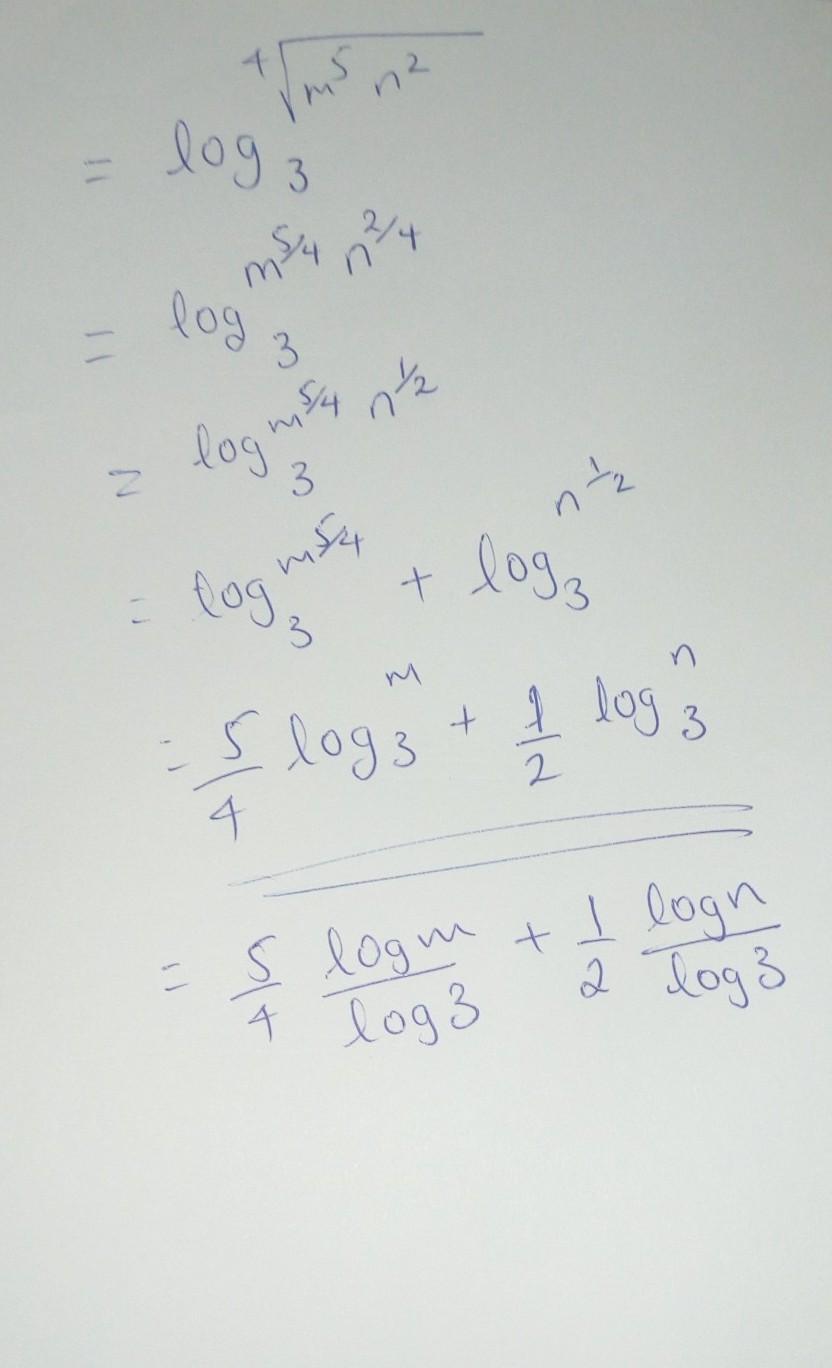 = log₃ ⁴√(m⁵ n²)
= log₃ m^5/4 n^2/4
= log₃ m^5/4 n^1/2
= log₃ m^5/4 + log₃ n^1/2
= 5/4 log₃ m + 1/2 log₃ n
= 5/4 log m / log 3 + 1/2 log n / log 3